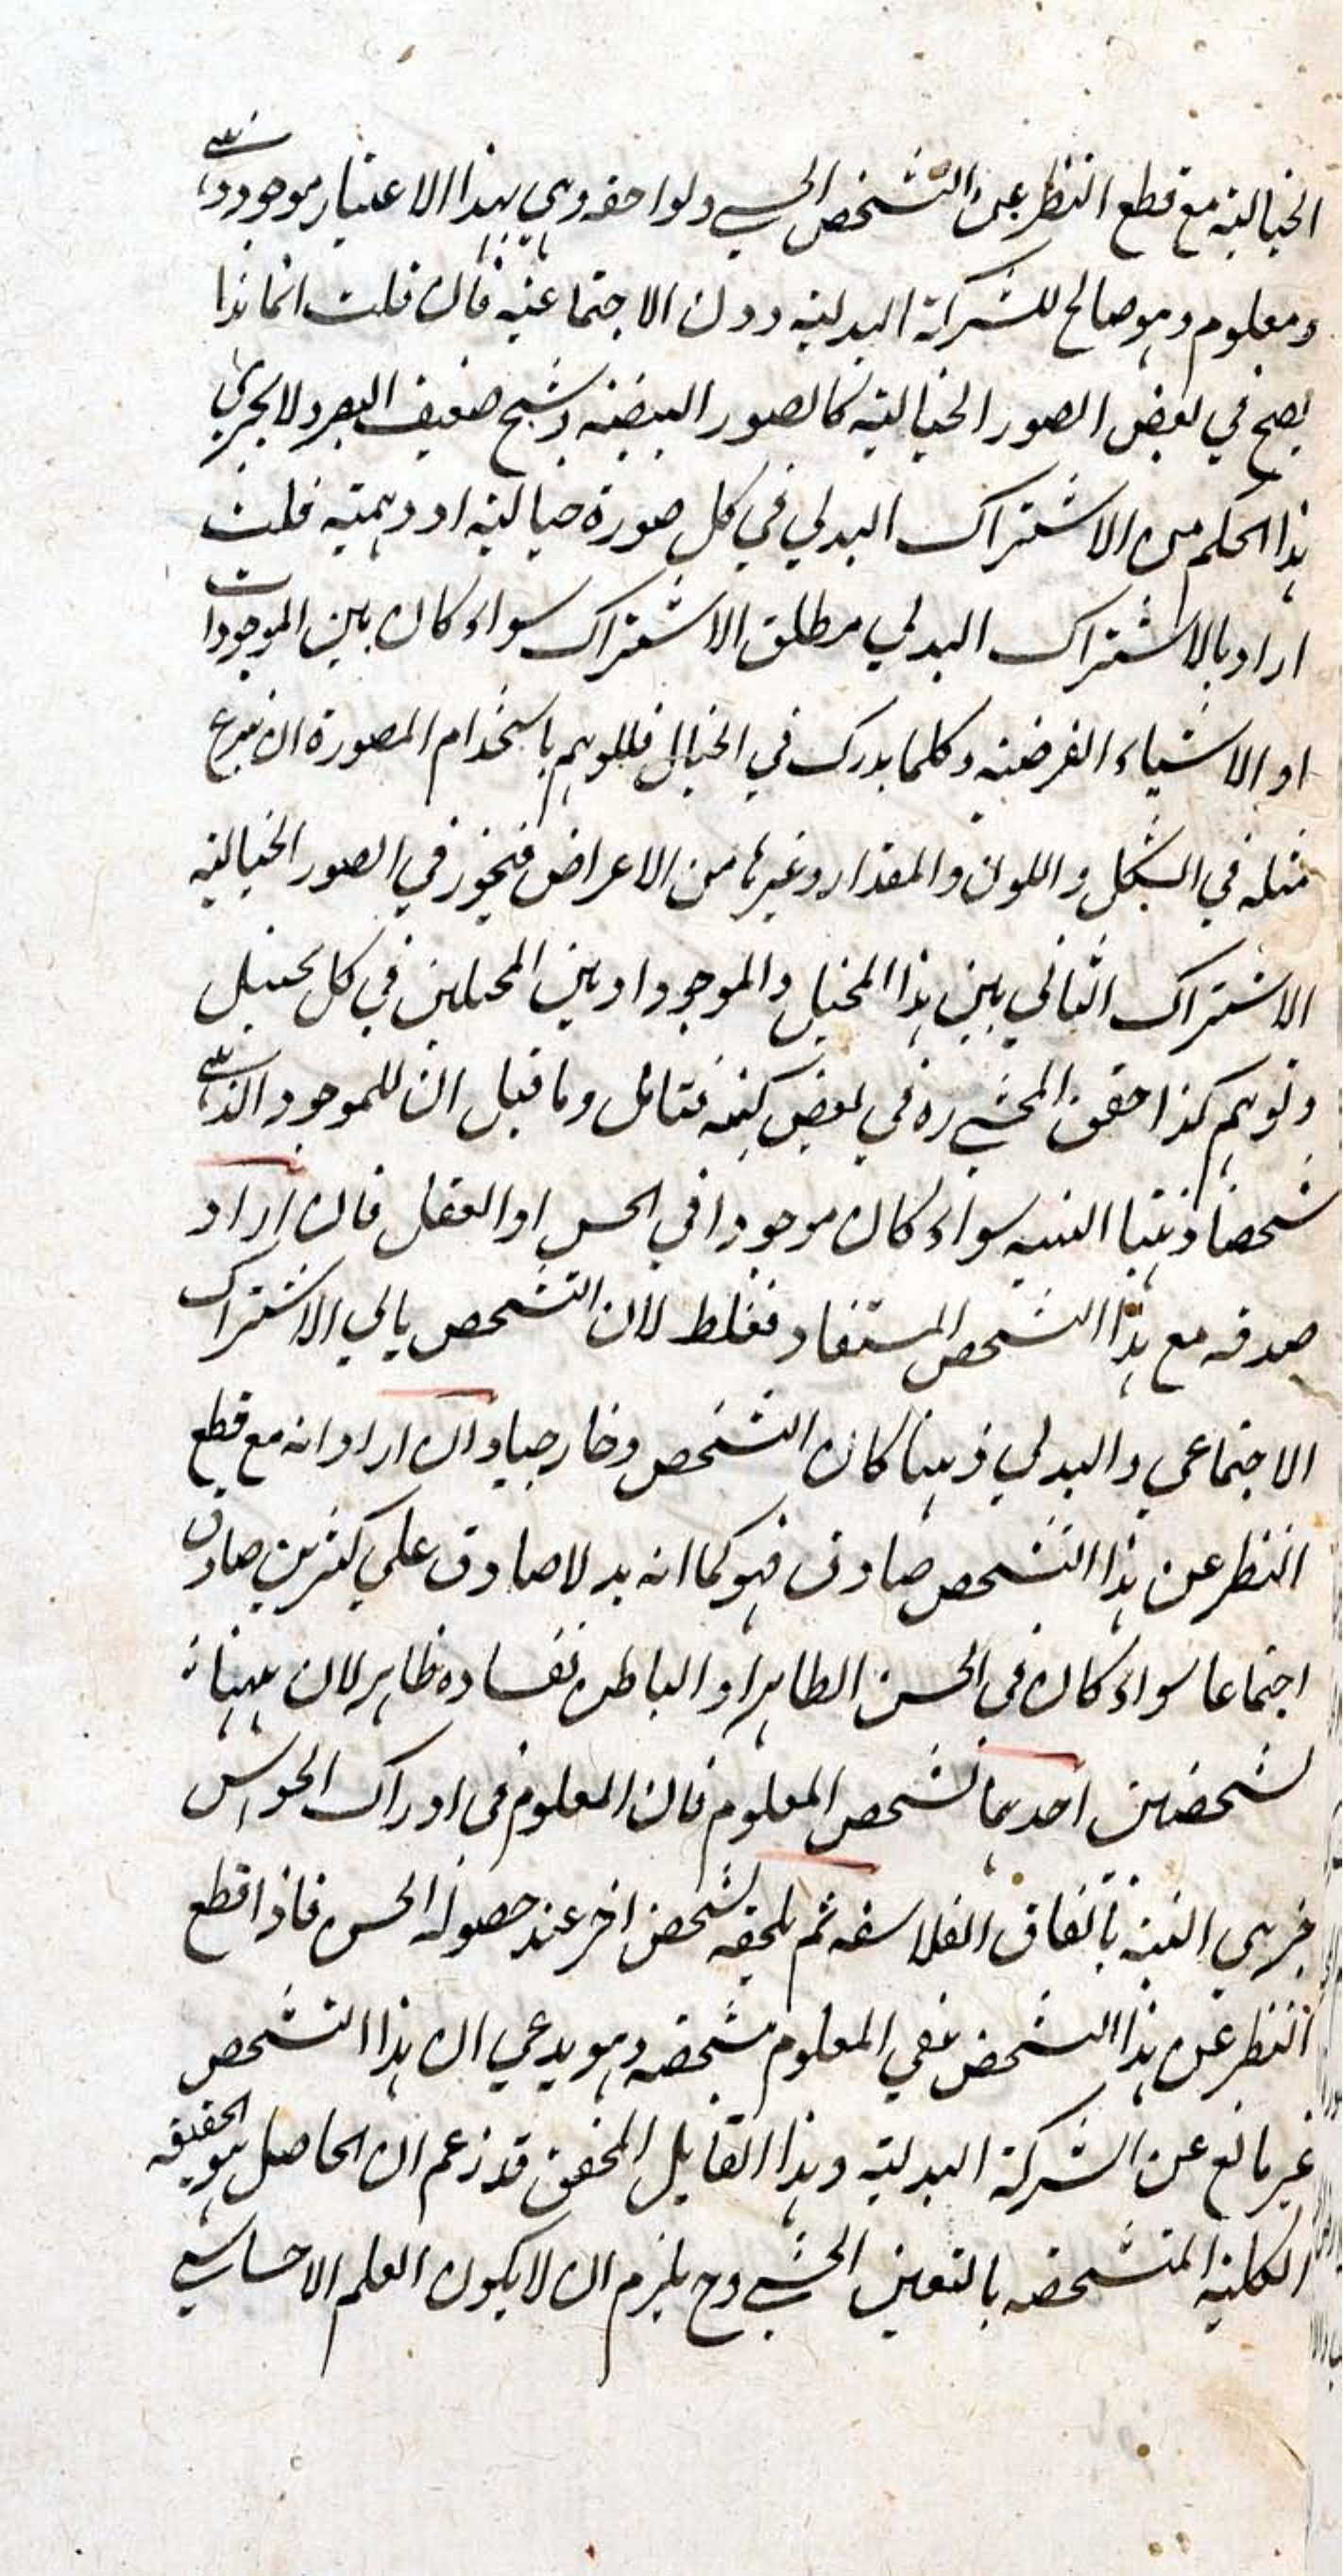 الخيالية مع قطع النظر عن التشخص الحسي ولواحقه وهي بهذا الاعتبار موجود ذهني
ومعلوم وهو صالح للشركة البدلية دون الاجتماعية فان قلت انما هذا
يصح في بعض الصور الخيالية كالصور البيضية وشبح ضعيف البصر ولا يجري
هذا الحكم من الاشتراك البدلي في كل صورة خيالية او وهمية قلت
اراد بالاشتراك البدلي مطلق الاشتراك سواء كان بين الموجودات
او الاشياء الفرضية وكلما يدرك في الخيال فللوهم باستخدام المصورة ان يخترع
مثله في الشكل واللون والمقدار وغيرها من الاعراض فيجوز في الصور الخيالية
الاشتراك الثاني بين هذا المخيل والموجود او بين المخيلين في كل تخيل
وتوهم كذا حقق المحشي ره في بعض كتبه فتامل وما قيل ان للموجود الذهني
شخصا ذهنيا البتة سواء كان موجودا في الحس او العقل فان اراد
صدقه مع هذا التشخص المستفاد فغلط لان التشخص يابي الاشتراك
الاجتماعي والبدلي ذهنيا كان التشخص وخارجيا وان اراد انه مع قطع
النظر عن هذا التشخص صادق فهو كما انه بدلا صادق علي كثيرين صادق
اجتماعا سواء كان في الحس الظاهر او الباطن ففساده ظاهر لان ههنا
تشخصين احدهما تشخص المعلوم فان المعلوم في ادراك الحواس
جزئي البتة باتفاق الفلاسفه ثم يلحقه تشخص اخر عند حصوله الحس فاذا قطع
النظر عن هذا التشخص بقي المعلوم مشخصه وهو يدعي ان هذا التشخص
غير مانع عن الشركة البدلية وهذا القايل المحقق قد زعم ان الحاصل هو الحقيقه
الكلية المتشخصه بالتعين الحسي وح يلزم ان لا يكون العلم الاحساسي